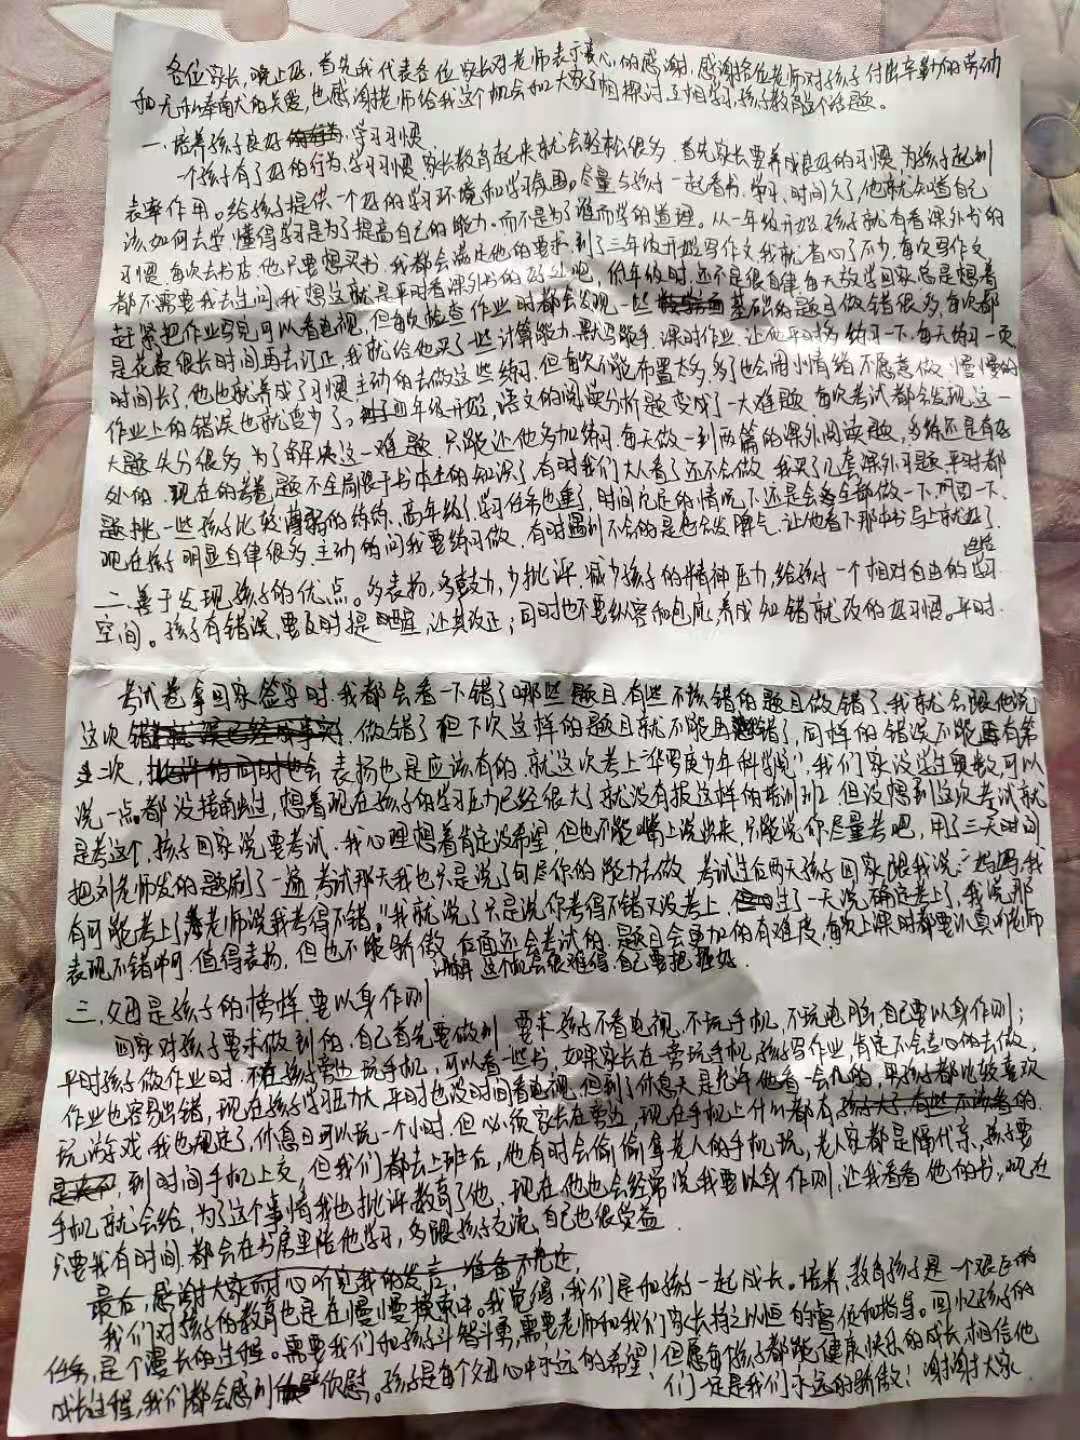 各位家长，晚上好，首先我代表各位家长对老师表示衷心的感谢，感谢各位老师对孩子付出辛勤的劳动
和无私奉献大的关爱，也感谢老师给我这个机会和大家相探讨互相学习，孩子教育这个话题。
一、培养孩子良好学习习惯
一个孩子有了好的行为、学习习惯，家长教育起来就会轻松很多，首先家长要养成良好的习惯，为孩子起到
表率作用。给孩子提供一个好的学习环境和学习氛围。尽量与孩子一起看书、学习、时间久了，他就知道自己
该如何去学，懂得学习是为了提高自己的能力。而不是为了谁而学的道理。从一年级开始，孩子就有看课外书的
习惯，每次去书店，他只要想买书，我都会满足他的要求，到了三年级开始写作文，我就省心了不少，每次写作文
都不需要我去过问，我想这就是平时看课外书的好处吧，低年级时，还不是很自律，每天放学回家总是想着
赶紧把作业写完可以看电视，但每次检查作业时都会发现一些基础的题目做错很多，每次都
是花费很长时间再去订正，我就给他买了一些计算能力、默写能手、课时作业，让他平时多练习一下，每天练习一页
时间长了，他也就养成了习惯主动的去做这些练习，但每次不能布置太多，多了也会闹小情绪不愿意做，慢慢的
作业上的错误也就变少了。四年级开始，语文的阅读分析题变成了一大难题，每次考试都会发现这一
大题失分很多，为了解决这一难题，只能让他多加练习，每天做一到两篇的课外阅读题，多练还是有好
处的，现在的考卷题不全局限于书本上的知识了，有时我们大人看了还不会做，我买了几套课外习题，平时都
题挑一些孩子比较薄弱的练练，高年级了学习任务也重了，时间充足的情况下还是会全部做一下，巩固一下，
现在孩子明显自律很多，主动的问我要练习做，有时遇到不会的是也会发脾气，让他看下那本书马上就好了。
二、善于发现孩子的优点。多表扬，多鼓力，少批评，减少孩子的精神压力，给孩子一个相对自由的学习
空间。孩子有错误，要及时提醒，让其改正；同时也不要纵容和包庇，养成知错就改的好习惯。平时
考试卷拿回家签字时，我都会看一下错了哪些题目，有些不该错的题目做错了，我就会跟他说
这次做错了但下次这样的题目就不能再错了，同样的错误不能再有第
二次，表扬也是应该有的，就这次考上"华罗庚少年科学院"，我们家没学过奥数，可以
说一点都没接触过，想着现在孩子的学习压力已经很大了就没有报这样的培训班，但没想到这次考试就
是考这个，孩子回家说要考试，我心理想着肯定没希望，但也不能嘴上说出来，只能说你尽量考吧，用了三天时间
把刘老师发的题刷了一遍，考试那天我也只是说了句尽你的能力去做，考试过后两天孩子回家跟我说："妈妈，我
有可能考上了，老师说我考得不错。"我就说了只是说你考得不错又没考上，过了一天说确定考上了，我说那
表现不错啊，值得表扬，但也不能骄傲，后面还会考试的，题目会更加的有难度，每次上课时都要认真听老师
讲解，这个机会很难得，自己要把握好。
三、父母是孩子的榜样，要以身作则
回家对孩子要求做到的，自己首先要做到，要求孩子不看电视、不玩手机、不玩电脑，自己要以身作则；
平时孩子做作业时，不在孩子旁边玩手机，可以看一些书，如果家长在一旁玩手机，孩子写作业，肯定不会专心的去做，
作业也容易出错，现在孩子学习压力大，平时也没时间看电视，但到了休息天是允许他看一会儿的，男孩子都比较喜欢
玩游戏，我也规定了，休息日可以玩一个小时，但必须家长在旁边，现在手机上什么都有，
到时间手机上交，但我们都去上班后，他有时会偷偷拿老人的手机玩，老人家都是隔代亲，孩子要
手机，就会给，为了这个事情我也批评教育了他，现在他也会经常说我要以身作则，让我看看他的书，现在
只要我有时间，都会在书房里陪他学习，多跟孩子交流，自己也很受益。
我们对孩子的教育也是在慢慢摸索中。我觉得，我们是和孩子一起成长。培养、教育孩子是一个艰巨的
任务，是个漫长的过程。需要我们和孩子斗智斗勇，需要老师和我们家长持之以恒的督促和指导。回忆孩子的
成长过程，我们都会感到欣慰。孩子是每个父母心中永远的希望！但愿每个孩子都能健康快乐的成长，相信他
们一定是我们永远的骄傲！谢谢大家